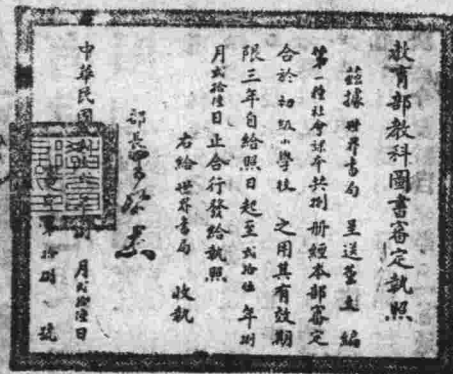 教育部教科圖書審定執照
茲據 世界書局 呈送董文編
第一種社會課本共捌冊經本部審定
合於初級小學校 之用其有效期
限三年自給照日起至貳拾伍年捌
月貳拾陸日止合行發給執照
右給世界書局 收執
部長
中華民國 月貳拾陸日
字 拾捌 號